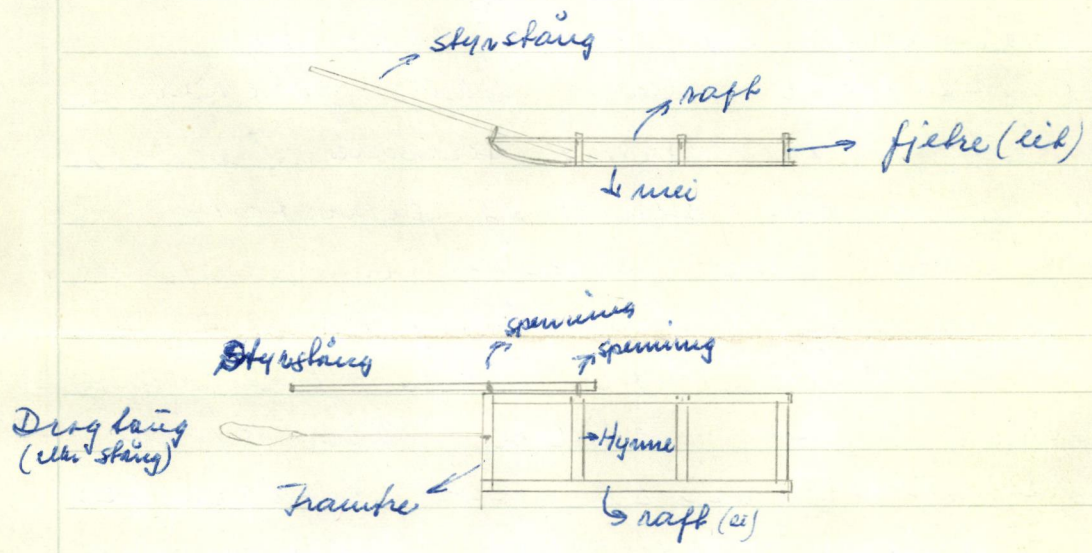 styrstång
raft
fjetre (eit)
mei
spenning
spenning
Styrstång
Drogtaug
(elli stång)
Hynne
Framtre
raft (ei)